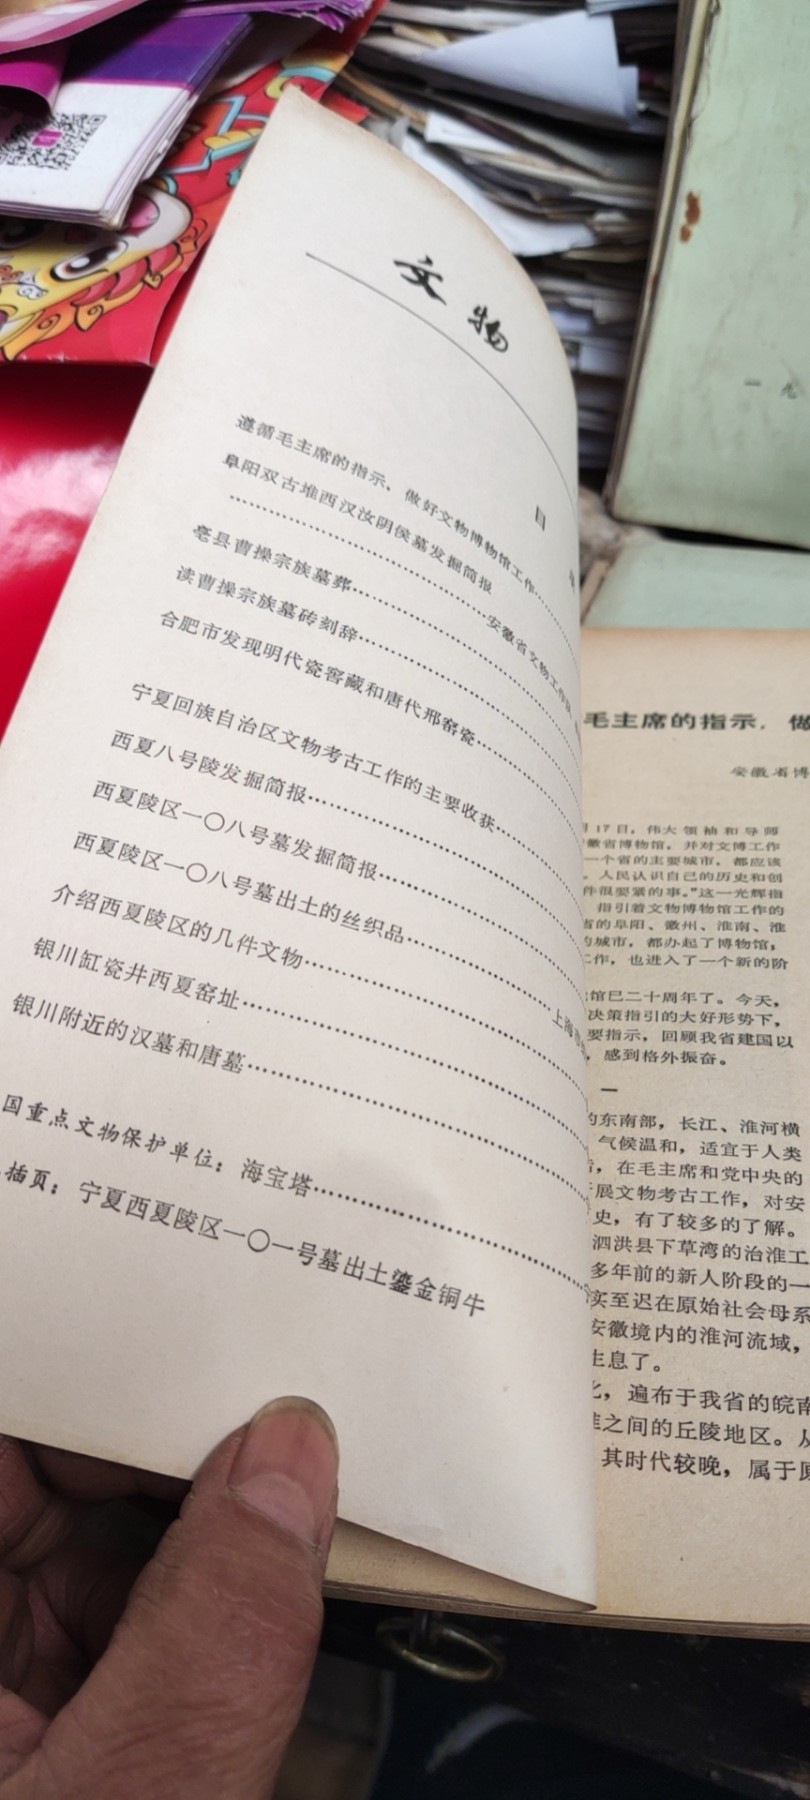 文物
目
遵循毛主席的指示，做好文物博物馆工作……
阜阳双古堆西汉汝阴侯墓发掘简报
……安徽省文物工作队
亳县曹操宗族墓葬……
读曹操宗族墓砖刻辞……
合肥市发现明代瓷窖藏和唐代邢窑瓷……
宁夏回族自治区文物考古工作的主要收获……
西夏八号陵发掘简报……
西夏陵区一〇八号墓发掘简报……
西夏陵区一〇八号墓出土的丝织品……上海市
介绍西夏陵区的几件文物……
银川缸瓷井西夏窑址……
银川附近的汉墓和唐墓……
国重点文物保护单位：海宝塔……
插页：宁夏西夏陵区一〇一号墓出土鎏金铜牛
一九
毛主席的指示，做
安徽省博
月17日，伟大领袖和导师
徽省博物馆，并对文博工作
一个省的主要城市，都应该
，人民认识自己的历史和创
件很要紧的事。”这一光辉指
指引着文物博物馆工作的
省的阜阳、徽州、淮南、淮
的城市，都办起了博物馆，
工作，也进入了一个新的阶
馆已二十周年了。今天，
决策指引的大好形势下，
要指示，回顾我省建国以
，感到格外振奋。
一
的东南部，长江、淮河横
气候温和，适宜于人类
，在毛主席和党中央的
展文物考古工作，对安
史，有了较多的了解。
泗洪县下草湾的治淮工
多年前的新人阶段的一
实至迟在原始社会母系
安徽境内的淮河流域，
生息了。
北，遍布于我省的皖南
淮之间的丘陵地区。从
其时代较晚，属于原